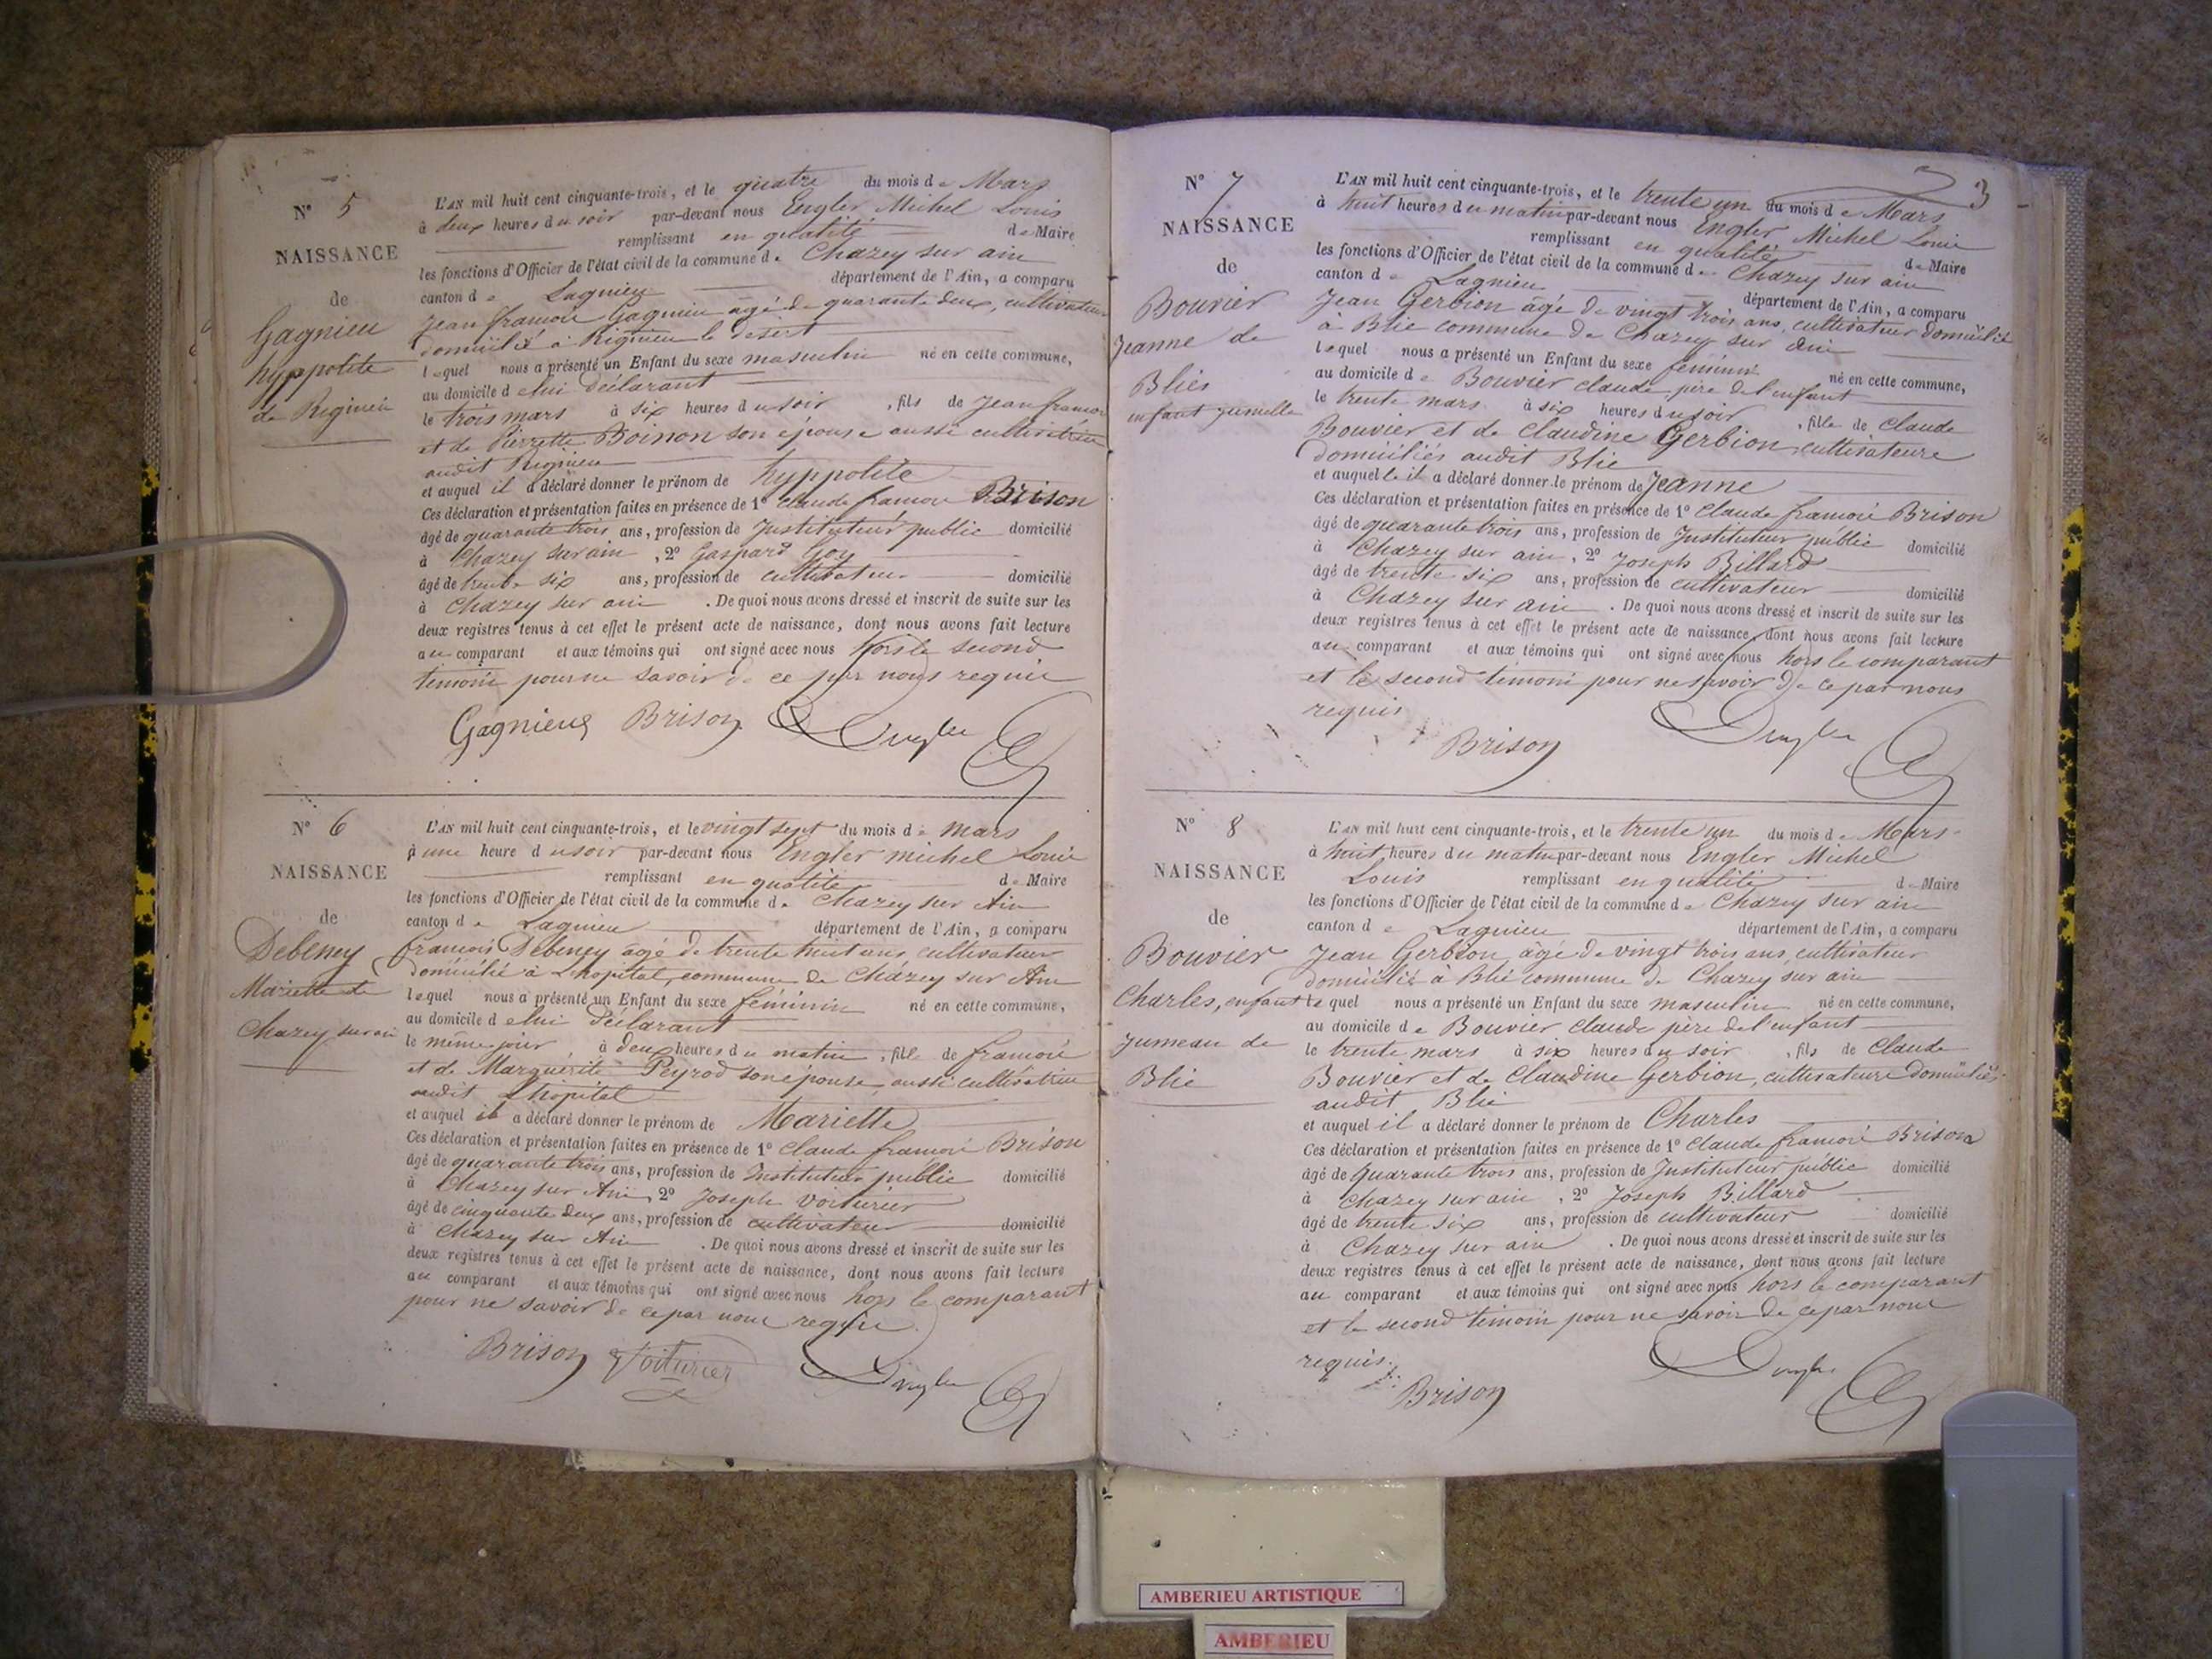 N° 5
NAISSANCE
de
Gagnieu
hyppolite
de Rignieu
L'AN mil huit cent cinquante-trois, et le quatre du mois de Mars
à deux heures du soir par-devant nous Engler Michel Louis
remplissant en qualité de Maire
les fonctions d'Officier de l'état civil de la commune de Chazey sur ain
canton de Lagnieu département de l'Ain, a comparu
Jean françois Gagnieu agé de quarante deux, cultivateur
domicilié à Rignieu le desert
lequel nous a présenté un Enfant du sexe masculin né en cette commune,
au domicile de lui déclarant
le trois mars à six heures du soir, fils de Jean françois
et de Pierrette Boinon son épouse aussi cultivatrice
audit Rignieu
et auquel il a déclaré donner le prénom de hyppolite
Ces déclaration et présentation faites en présence de 1° Claude françois Brison
âgé de quarante trois ans, profession de Instituteur public domicilié
à Chazey sur ain, 2° Gaspard Goy
âgé de trente six ans, profession de cultivateur domicilié
à Chazey sur ain. De quoi nous avons dressé et inscrit de suite sur les
deux registres tenus à cet effet le présent acte de naissance, dont nous avons fait lecture
au comparant et aux témoins qui ont signé avec nous hors le second
témoin pour ne savoir de ce par nous requis
Gagnieux Brison Engler
N° 6
NAISSANCE
de
Debeney
Mariette de
Chazey sur ain
L'AN mil huit cent cinquante-trois, et le vingt sept du mois de mars
à une heure du soir par-devant nous Engler michel Louis
remplissant en qualité de Maire
les fonctions d'Officier de l'état civil de la commune de Chazey sur Ain
canton de Lagnieu département de l'Ain, a comparu
françois Debeney agé de trente huit ans, cultivateur
domicilié à L'hopital, commune de Chazey sur Ain
lequel nous a présenté un Enfant du sexe féminin né en cette commune,
au domicile de lui déclarant
le même jour à deux heures du matin, fille de françois
et de Marguérite Peyrod son épouse aussi cultivatrice
audit L'hopital
et auquel il a déclaré donner le prénom de Mariette
Ces déclaration et présentation faites en présence de 1° Claude françois Brison
âgé de quarante trois ans, profession de Instituteur public domicilié
à Chazey sur Ain, 2° Joseph Voiturier
âgé de cinquante deux ans, profession de cultivateur domicilié
à Chazey sur Ain. De quoi nous avons dressé et inscrit de suite sur les
deux registres tenus à cet effet le présent acte de naissance, dont nous avons fait lecture
au comparant et aux témoins qui ont signé avec nous hors le comparant
pour ne savoir de ce par nous requis.
Brison Voiturier Engler
3
N° 7
NAISSANCE
de
Bouvier
Jeanne de
Blies
enfant jumelle
L'AN mil huit cent cinquante-trois, et le trente un du mois de Mars
à huit heures du matin par-devant nous Engler Michel Louis
remplissant en qualité de Maire
les fonctions d'Officier de l'état civil de la commune de Chazey sur ain
canton de Lagnieu département de l'Ain, a comparu
Jean Gerbion âgé de vingt trois ans, cultivateur domicilié
à Blie commune de Chazey sur ain
lequel nous a présenté un Enfant du sexe féminin né en cette commune,
au domicile de Bouvier claude, père de l'enfant
le trente mars à six heures du soir, fille de Claude
Bouvier et de Claudine Gerbion, cultivateurs
domiciliés audit Blie
et auquelle il a déclaré donner le prénom de Jeanne
Ces déclaration et présentation faites en présence de 1° Claude françois Brison
âgé de quarante trois ans, profession de Instituteur public domicilié
à Chazey sur ain, 2° Joseph Billard
âgé de trente six ans, profession de cultivateur domicilié
à Chazey sur ain. De quoi nous avons dressé et inscrit de suite sur les
deux registres tenus à cet effet le présent acte de naissance, dont nous avons fait lecture
au comparant et aux témoins qui ont signé avec nous hors le comparant
et le second témoin pour ne savoir de ce par nous
requis
Brison Engler
N° 8
NAISSANCE
de
Bouvier
Charles, enfant
jumeau de
Blie
L'AN mil huit cent cinquante-trois, et le trente un du mois de Mars
à huit heures du matin par-devant nous Engler Michel
Louis remplissant en qualité de Maire
les fonctions d'Officier de l'état civil de la commune de Chazey sur ain
canton de Lagnieu département de l'Ain, a comparu
Jean Gerbion, âgé de vingt trois ans, cultivateur
domicilié à Blie commune de Chazey sur ain
lequel nous a présenté un Enfant du sexe masculin né en cette commune,
au domicile de Bouvier Claude père de l'enfant
le trente mars à six heures du soir, fils de Claude
Bouvier et de Claudine Gerbion, cultivateurs domiciliés
audit Blie
et auquel il a déclaré donner le prénom de Charles
Ces déclaration et présentation faites en présence de 1° Claude françois Brison
âgé de quarante trois ans, profession de Instituteur public domicilié
à Chazey sur ain, 2° Joseph Billard
âgé de trente six ans, profession de cultivateur domicilié
à Chazey sur ain. De quoi nous avons dressé et inscrit de suite sur les
deux registres tenus à cet effet le présent acte de naissance, dont nous avons fait lecture
au comparant et aux témoins qui ont signé avec nous hors le comparant
et le second témoin pour ne savoir de ce par nous
requis.
Brison Engler
AMBERIEU ARTISTIQUE
AMBERIEU